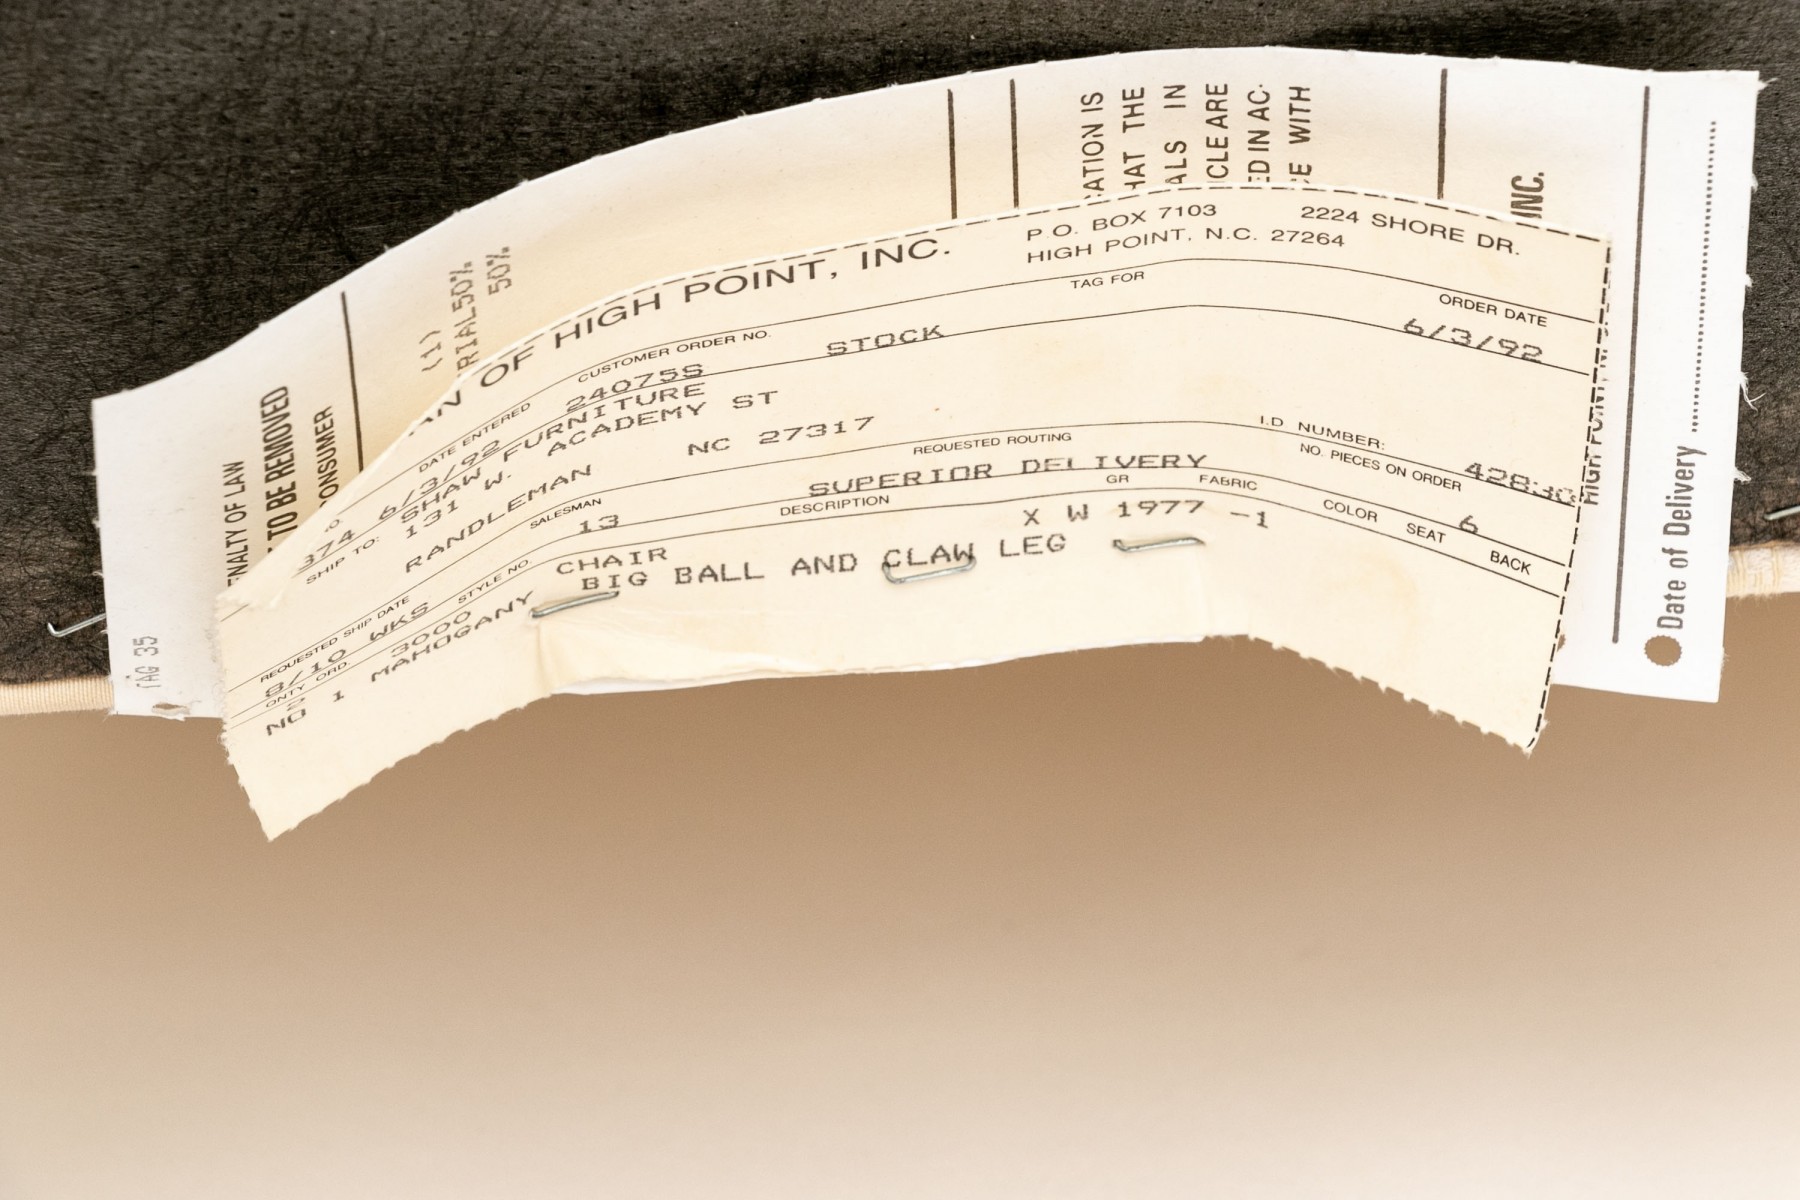 OF HIGH POINT, INC.
P.O. BOX 7103 2224 SHORE DR.
HIGH POINT, N.C. 27264
DATE ENTERED CUSTOMER ORDER NO. TAG FOR ORDER DATE
374 6/3/92 24075S STOCK 6/3/92
SHIP TO: SHAW FURNITURE
131 W. ACADEMY ST
RANDLEMAN NC 27317
I.D NUMBER:
REQUESTED SHIP DATE SALESMAN REQUESTED ROUTING NO. PIECES ON ORDER
8/10 WKS 13 SUPERIOR DELIVERY 6
QNTY ORD. STYLE NO. DESCRIPTION GR FABRIC COLOR SEAT BACK
2 3000 CHAIR X W 1977 -1
NO 1 MAHOGANY BIG BALL AND CLAW LEG
LAW
TO BE REMOVED
CONSUMER
(1)
50%
50%
IS
THE
IN
ARE
IN AC-
WITH
INC.
HIGH POINT,
Date of Delivery
TAG 35